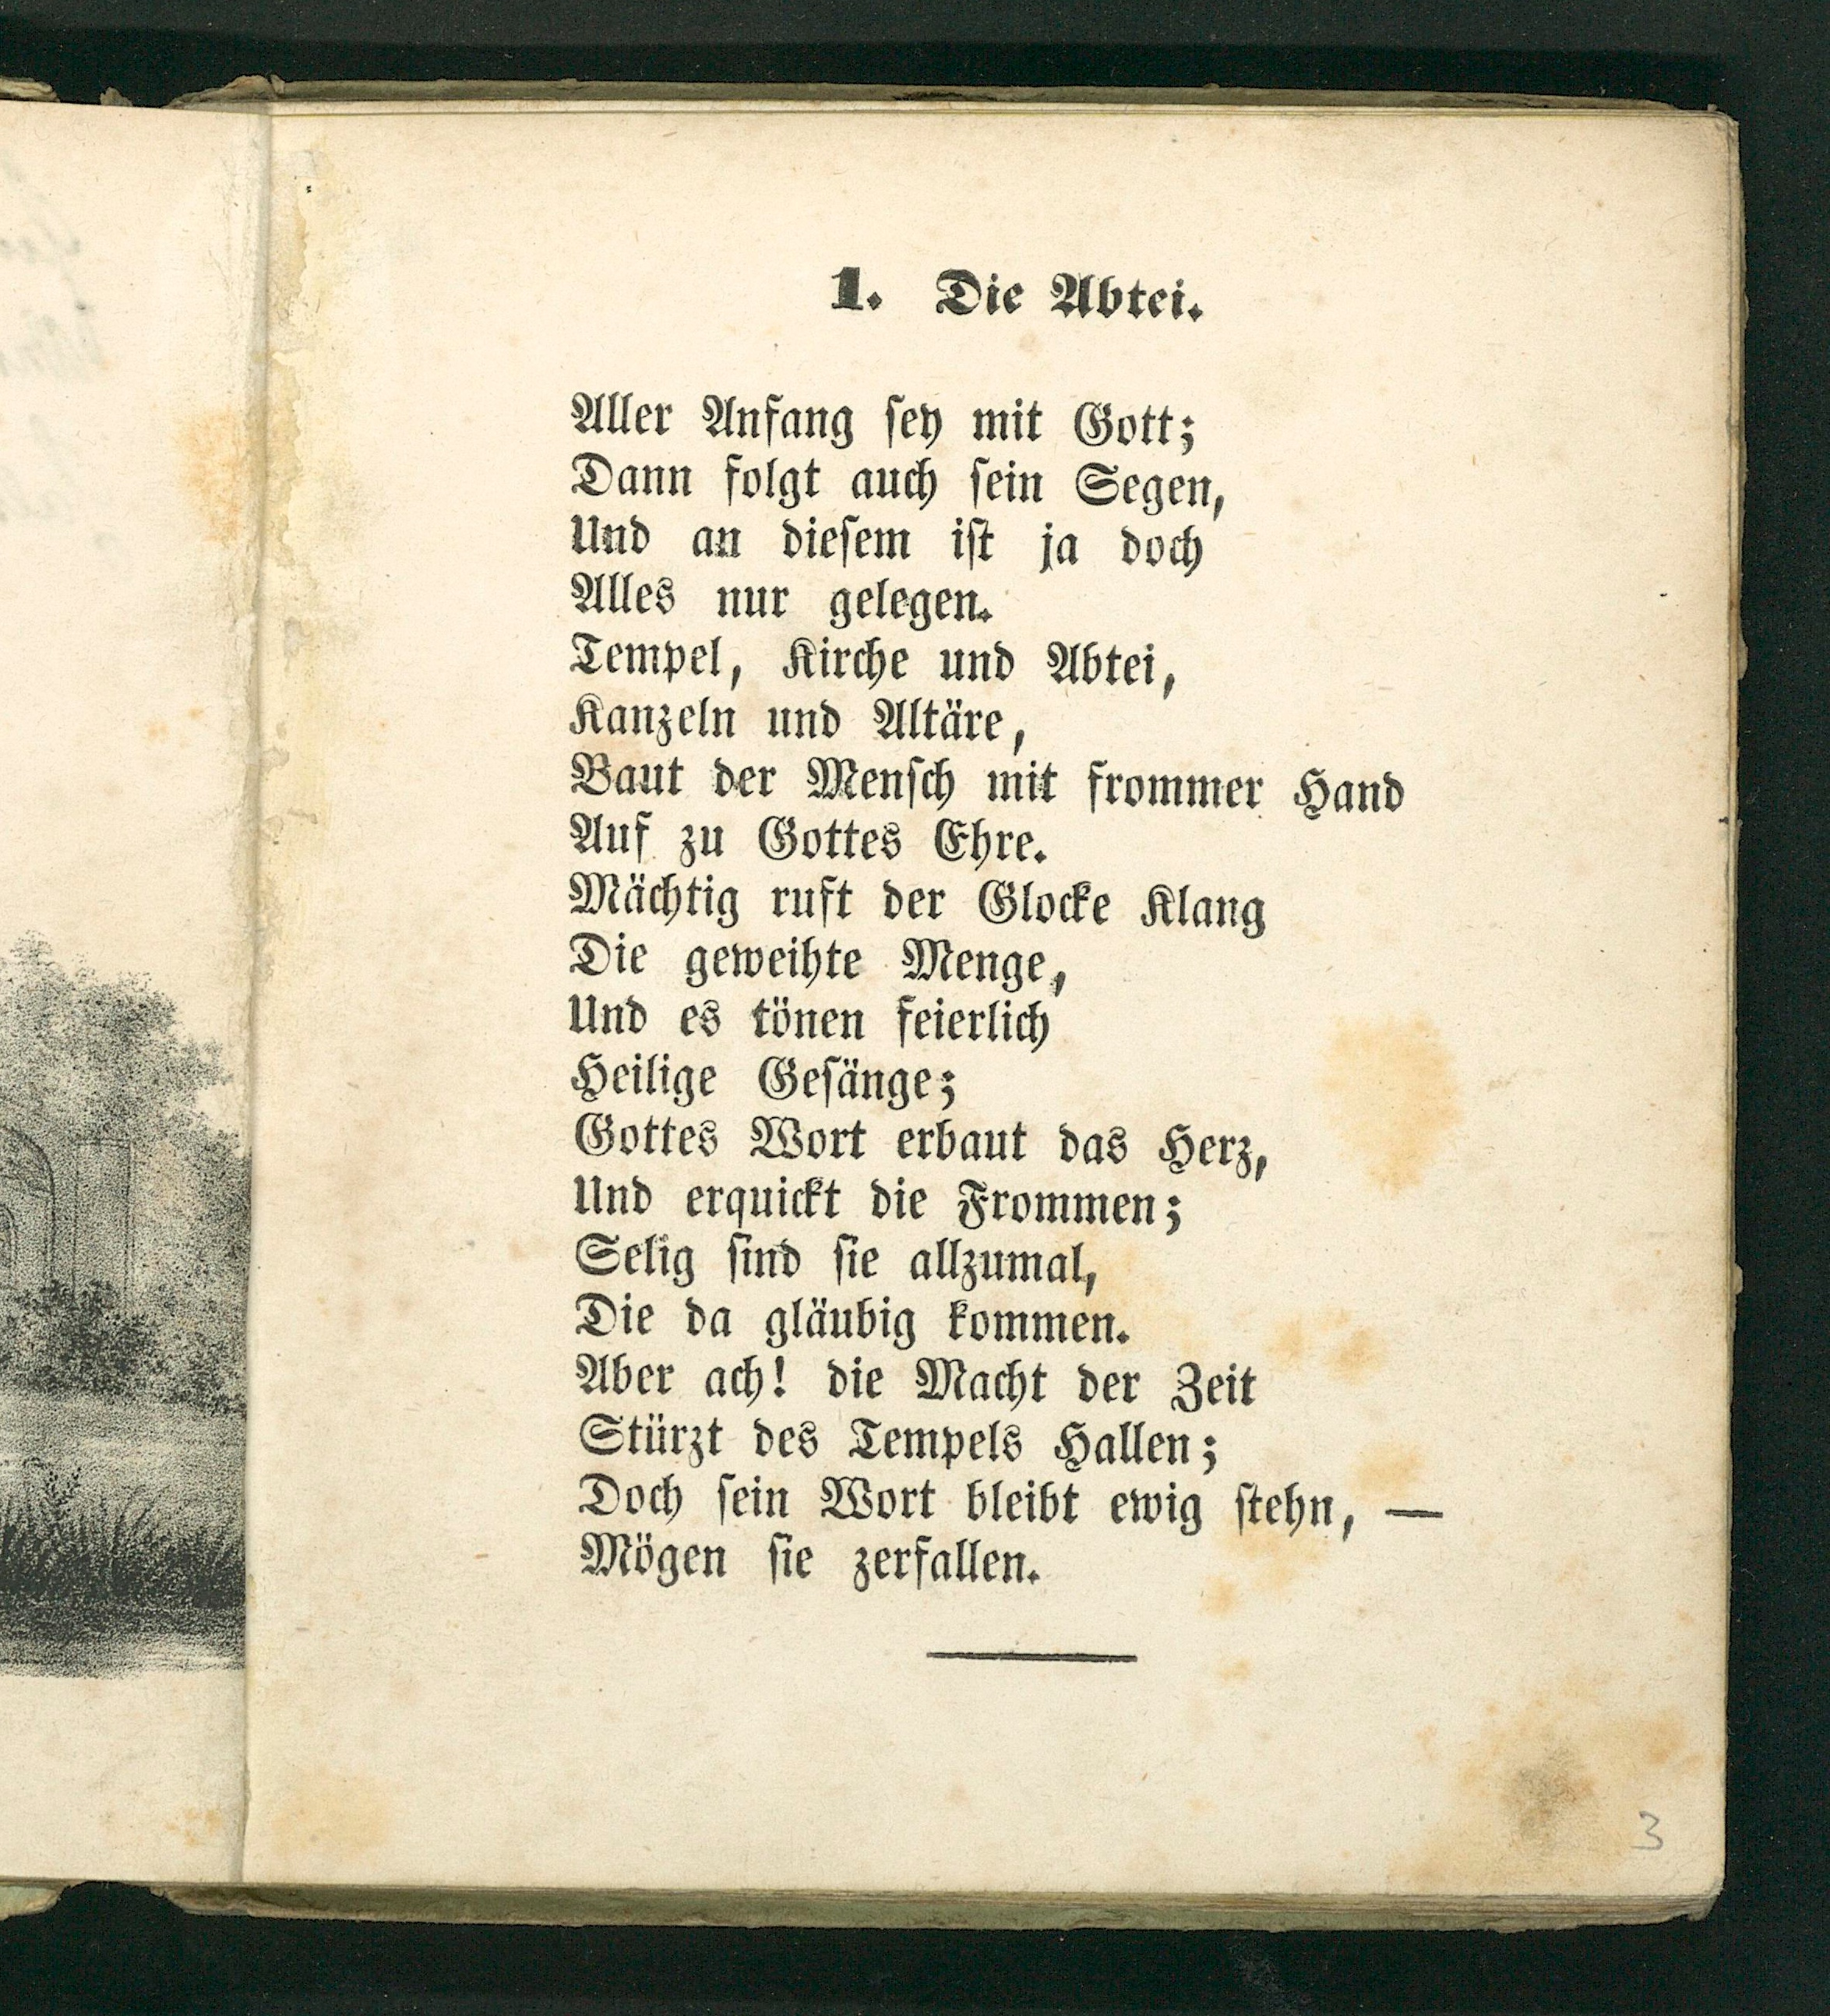 1. Die Abtei.
Aller Anfang sey mit Gott;
Dann folgt auch sein Segen,
Und an diesem ist ja doch
Alles nur gelegen.
Tempel, Kirche und Abtei,
Kanzeln und Altäre,
Baut der Mensch mit frommer Hand
Auf zu Gottes Ehre.
Mächtig ruft der Glocke Klang
Die geweihte Menge,
Und es tönen feierlich
Heilige Gesänge;
Gottes Wort erbaut das Herz,
Und erquickt die Frommen;
Selig sind sie allzumal,
Die da gläubig kommen.
Aber ach! die Macht der Zeit
Stürzt des Tempels Hallen;
Doch sein Wort bleibt ewig stehn, —
Mögen sie zerfallen.
3